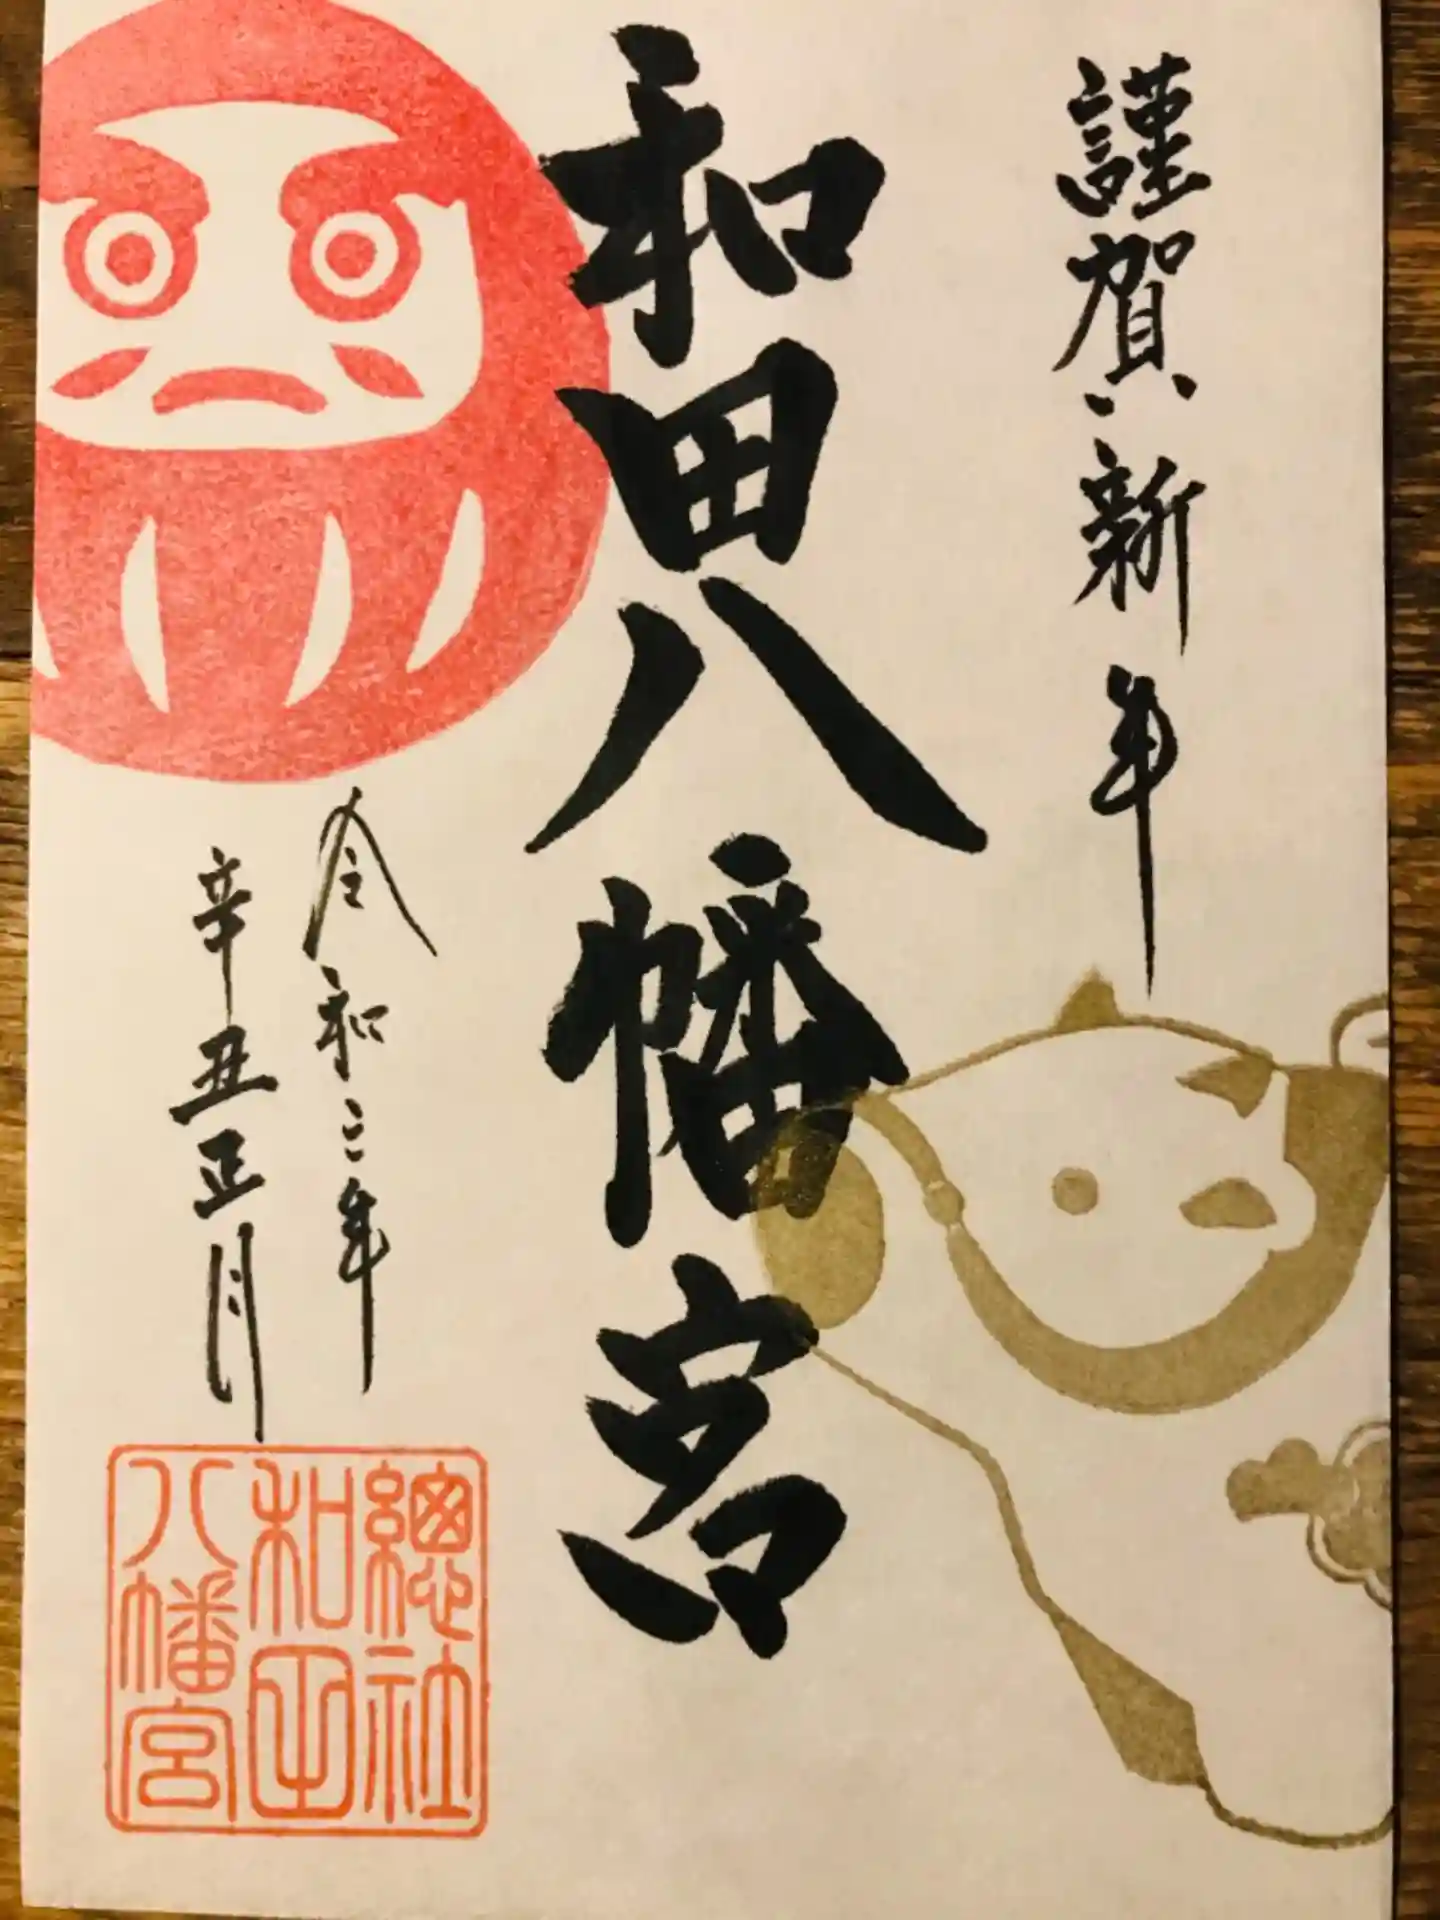 謹賀新年
和田八幡宮
令和三年
辛丑正月
總社
和田
八幡宮